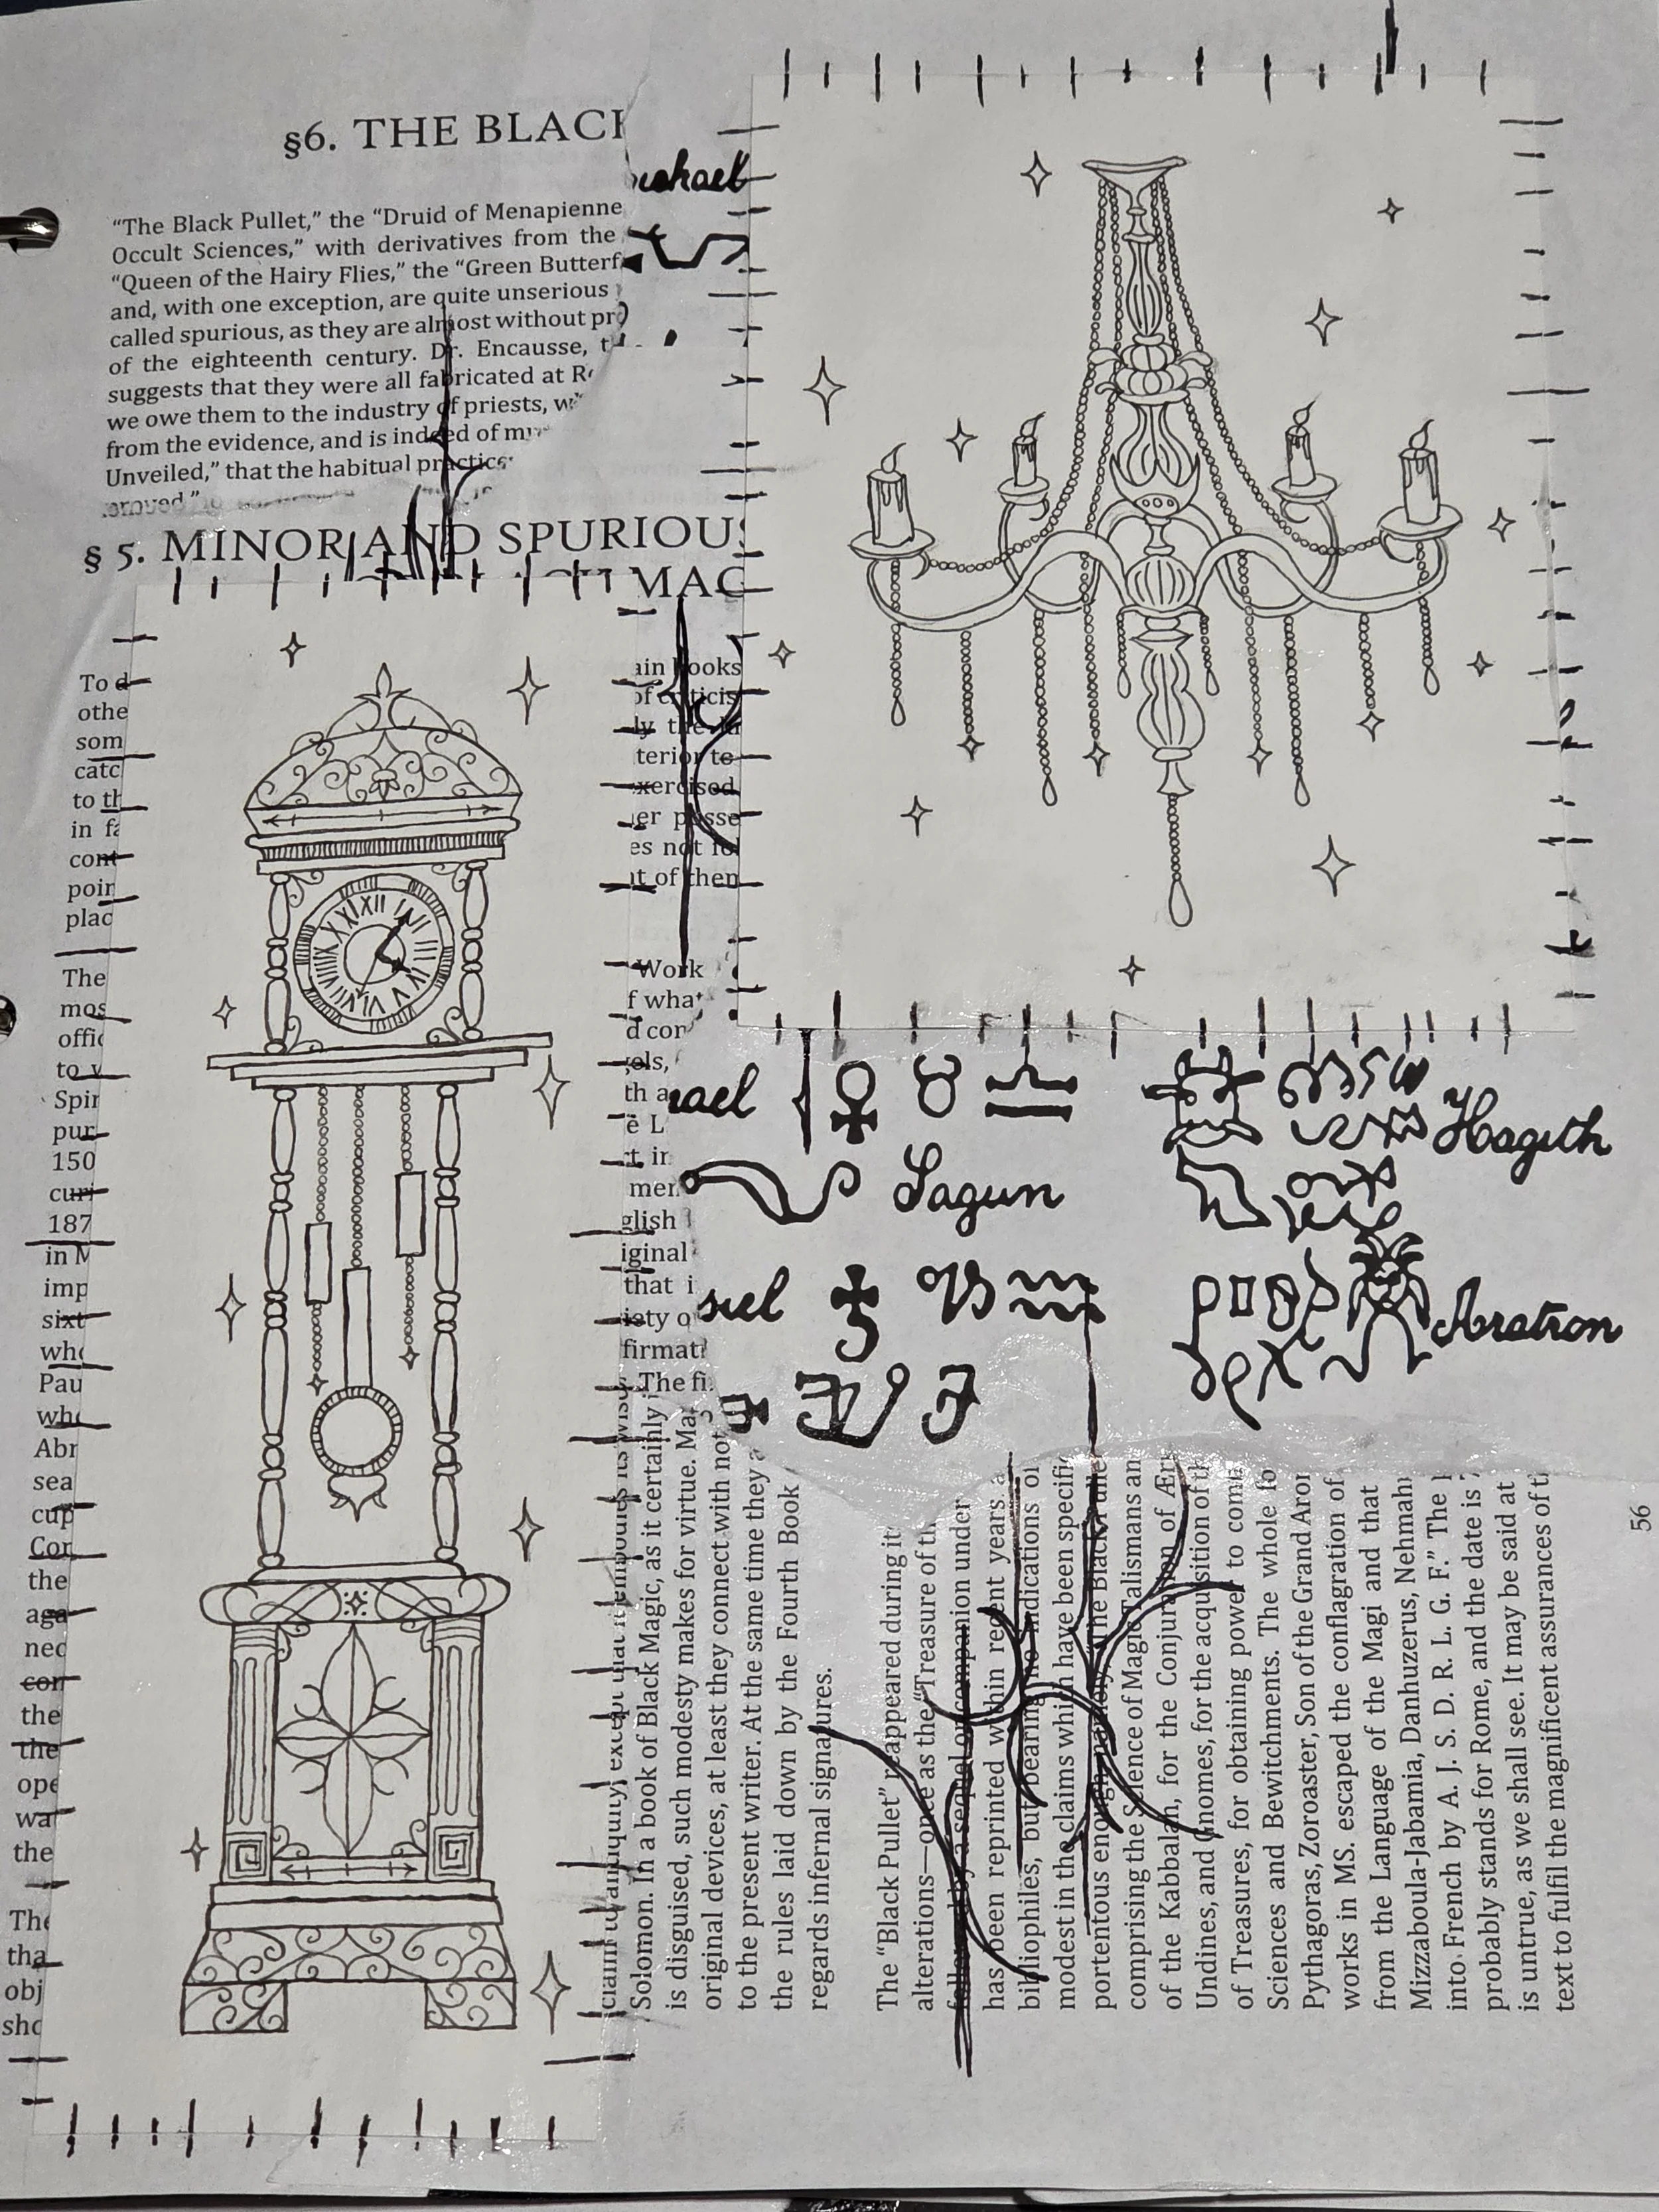 §6. THE BLACK
“The Black Pullet,” the “Druid of Menapienne
Occult Sciences,” with derivatives from the
“Queen of the Hairy Flies,” the “Green Butterf
and, with one exception, are quite unserious
called spurious, as they are almost without pr
of the eighteenth century. Dr. Encausse, t
suggests that they were all fabricated at R
we owe them to the industry of priests, w
from the evidence, and is indeed of m
Unveiled,” that the habitual practice
§ 5. MINOR AND SPURIOUS
MAG
To d
othe
som
catc
to th
in fa
cont
poin
plac
The
mos
offic
to v
Spir
pur
150
curi
187
in M
imp
sixt
who
Pau
who
Abr
sea
cup
Cor
the
aga
nec
con
the
the
ope
wa
the
The
tha
obj
sho
XII I II III IIII V VI VII VIII IX X XI
ain books
of criticis
ly the
terior to
xercised
er posse
es not fol
t of them
Work
f what
d con
gels,
th a
e L
ct in
men
glish
iginal
that i
iety o
firmati
s. The fi
ael
Hagith
Sagun
siel
Aratron
Solomon. In a book of Black Magic, as it certainly
is disguised, such modesty makes for virtue. Ma
original devices, at least they connect with not
to the present writer. At the same time they a
the rules laid down by the Fourth Book
regards infernal signatures.
The “Black Pullet” reappeared during it
alterations—once as the “Treasure of th
followed by a sequel or companion under
has been reprinted within recent years a
bibliophiles, but bearing no indications of
modest in the claims which have been specifi
portentous enough
comprising the Science of Magic Talismans an
of the Kabbalah, for the Conjuration of Ær
Undines, and Gnomes, for the acquisition of th
of Treasures, for obtaining power to comm
Sciences and Bewitchments. The whole fo
Pythagoras, Zoroaster, Son of the Grand Aror
works in MS. escaped the conflagration of
from the Language of the Magi and that
Mizzaboula-Jabamia, Danhuzerus, Nehmahm
into French by A. J. S. D. R. L. G. F.” The p
probably stands for Rome, and the date is 7
is untrue, as we shall see. It may be said at
text to fulfil the magnificent assurances of ti
56